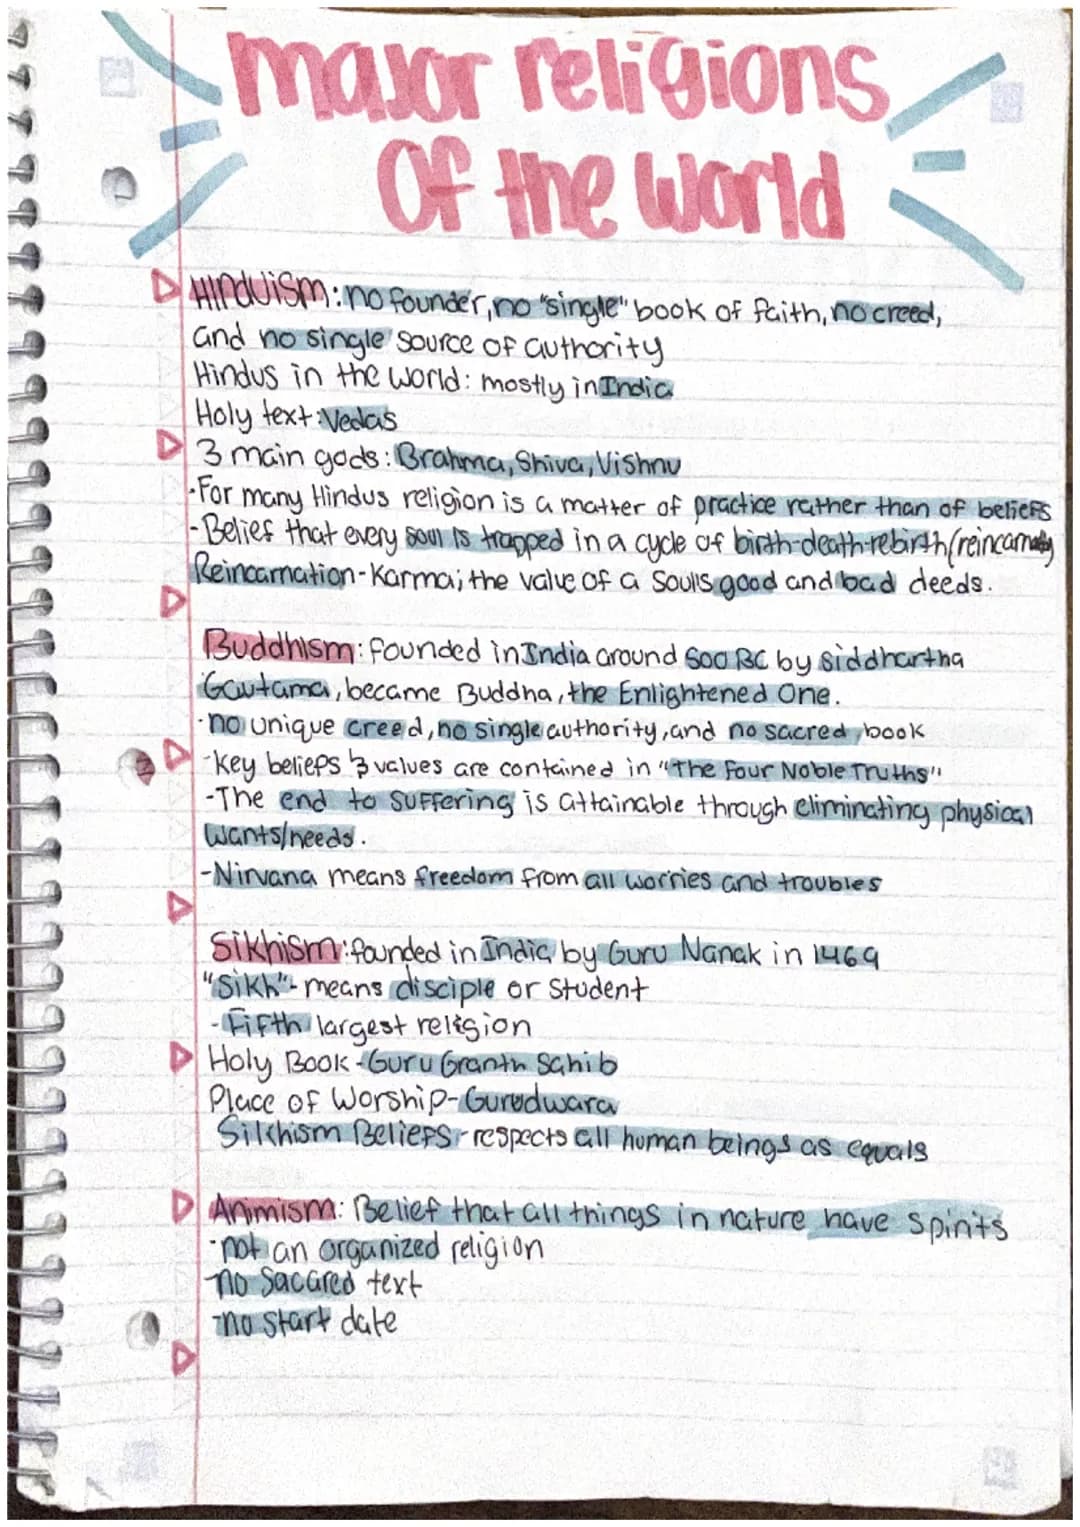 major religions
Of the World
Hinduism: no founder, no "single" book of faith, no creed,
and no single source of authority
Hindus in the world: mostly in India
Holy text: Vedas
3 main gods: Brahma, Shiva, Vishnu
-For many Hindus religion is a matter of practice rather than of beliefs
-Belief that every soul is trapped in a cycle of birth-death-rebirth
Reincarnation-Karma; the value of a souls good and bad deeds.
Buddhism: founded in India around 500 BC by Siddhartha
Gautama, became Buddha, the Enlightened One.
-no unique creed, no single authority, and no sacred book
-key beliefs & values are contained in "The Four Noble Truths"
-The end to suffering is attainable through eliminating physical
wants/needs.
-Nirvana means freedom from all worries and troubles
Sikhism: founded in India by Guru Nanak in 1469
"Sikh"- means disciple or student
-Fifth largest religion
Holy Book-Guru Granth Sahib
Place of Worship-Gurudwara
Sikhism Beliefs-respects all human beings as equals
Animism: Belief that all things in nature have spirits
-not an organized religion
-no sacared text
-no start date